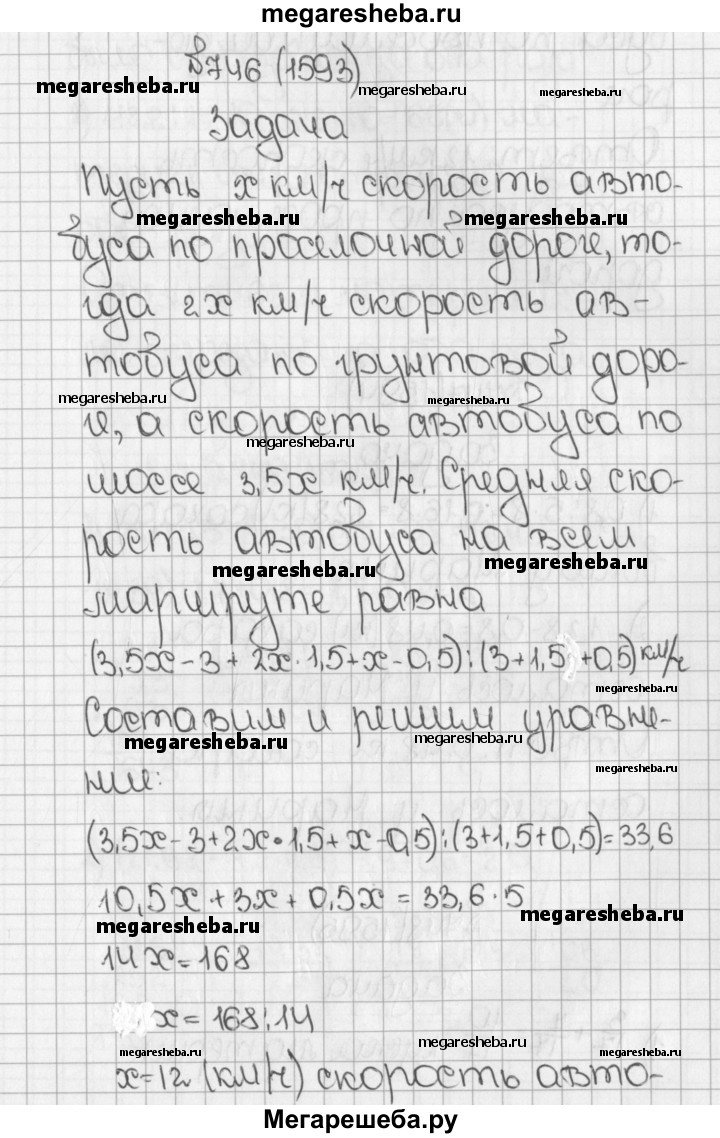 megaresheba.ru
№746 (1593)
megaresheba.ru megaresheba.ru megaresheba.ru
Задача
Пусть x км/ч скорость авто-
megaresheba.ru megaresheba.ru
буса по проселочной дороге, то-
гда 2x км/ч скорость ав-
тобуса по грунтовой доро-
megaresheba.ru megaresheba.ru
ге, а скорость автобуса по
megaresheba.ru
шоссе 3,5x км/ч. Средняя ско-
рость автобуса на всем
megaresheba.ru megaresheba.ru
маршруте равна
(3,5x - 3 + 2x · 1,5 + x - 0,5) : (3 + 1,5 + 0,5) км/ч
megaresheba.ru
Составим и решим уравне-
megaresheba.ru megaresheba.ru
megaresheba.ru
ние:
(3,5x - 3 + 2x · 1,5 + x - 0,5) : (3 + 1,5 + 0,5) = 33,6
10,5x + 3x + 0,5x = 33,6 · 5
megaresheba.ru megaresheba.ru
14x = 168
x = 168 : 14
megaresheba.ru megaresheba.ru megaresheba.ru
x = 12 (км/ч) скорость авто-
Мегарешеба.ру